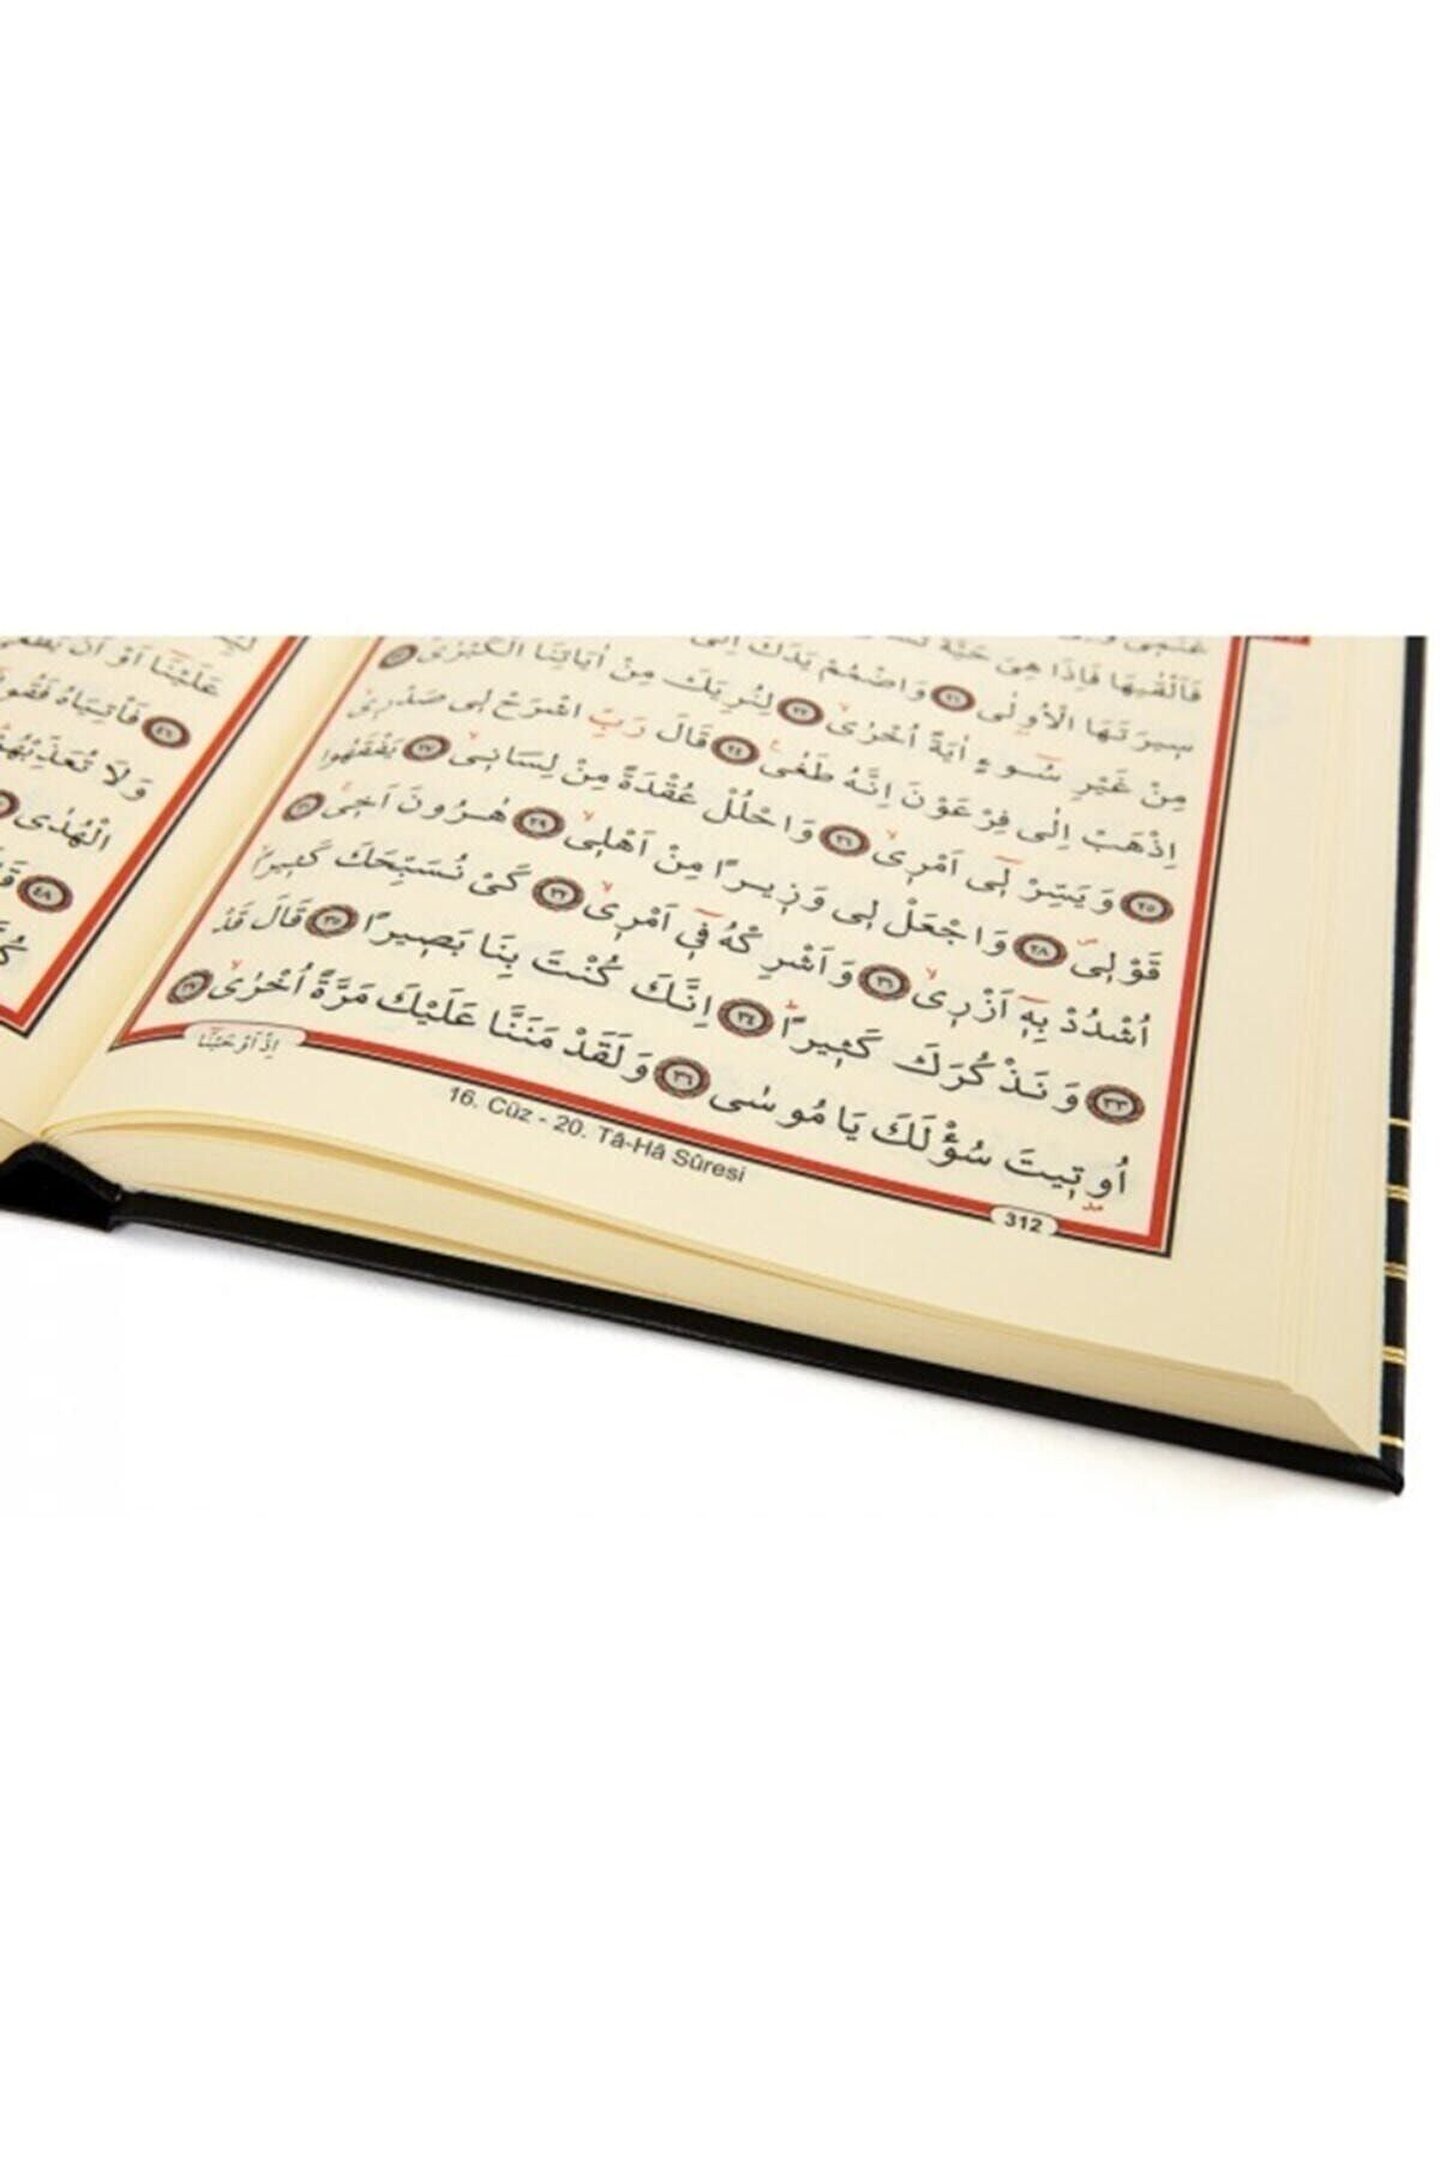 فَاَلْقٰيهَا فَاِذَا هِىَ حَيَّةٌ
سِيرَتَهَا الْاُولٰى ﴿٢١﴾ وَاضْمُمْ يَدَكَ اِلٰى
مِنْ غَيْرِ سُٓوءٍ اٰيَةً اُخْرٰىۙ ﴿٢٢﴾ لِنُرِيَكَ مِنْ اٰيَاتِنَا الْكُبْرٰىۚ ﴿٢٣﴾
اِذْهَبْ اِلٰى فِرْعَوْنَ اِنَّهُ طَغٰى۟ ﴿٢٤﴾ قَالَ رَبِّ اشْرَحْ لِى صَدْرِىۙ
﴿٢٥﴾ وَيَسِّرْ لِٓى اَمْرِىۙ ﴿٢٦﴾ وَاحْلُلْ عُقْدَةً مِنْ لِسَانِىۙ ﴿٢٧﴾ يَفْقَهُوا
قَوْلِىۖ ﴿٢٨﴾ وَاجْعَلْ لِى وَزِيرًا مِنْ اَهْلِىۙ ﴿٢٩﴾ هٰرُونَ اَخِىۚ ﴿٣٠﴾
اُشْدُدْ بِهٓ اَزْرِىۙ ﴿٣١﴾ وَاَشْرِكْهُ فٓى اَمْرِىۙ ﴿٣٢﴾ كَىْ نُسَبِّحَكَ كَثِيرًاۙ
﴿٣٣﴾ وَنَذْكُرَكَ كَثِيرًاۜ ﴿٣٤﴾ اِنَّكَ كُنْتَ بِنَا بَصِيرًا ﴿٣٥﴾ قَالَ قَدْ
اُوتِيتَ سُؤْلَكَ يَا مُوسٰى ﴿٣٦﴾ وَلَقَدْ مَنَنَّا عَلَيْكَ مَرَّةً اُخْرٰىۙ ﴿٣٧﴾
اِذْ اَوْحَيْنَٓا
312
16. Cüz - 20. Tâ-Hâ Sûresi
عَلَيْنَٓا اَوْ اَنْ يَطْغٰى
﴿٤٦﴾ فَاْتِيَاهُ فَقُولَٓا
وَلَا تُعَذِّبْهُمْ
الْهُدٰى
﴿٤٨﴾